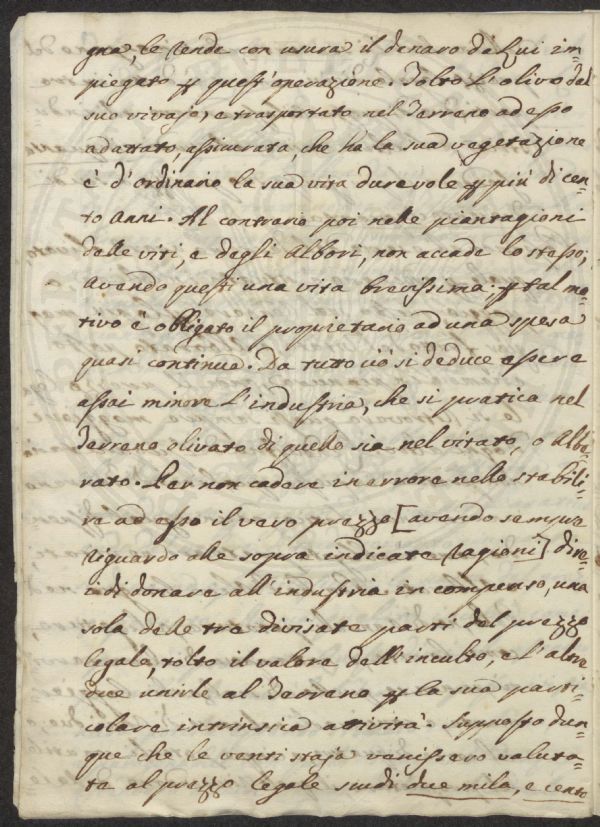 gna, le rende con usura il denaro da lui im=
piegato p quest'operazione. Tolto l'olivo dal
suo vivajo, e trasportato nel Terreno ad esso
adattato, assicurata, che ha la sua vegetazione
è d'ordinario la sua vita durevole p più di cen=
to anni. Al contrario poi nelle piantagioni
delle viti, e degli Albori, non accade lo stesso;
avendo questi una vita brevissima: p tal mo=
tivo è obbligato il proprietario ad una spesa
quasi continua. Da tutto ciò si deduce essere
assai minore l'industria, che si pratica nel
Terreno olivato di quello sia nel vitato, o Albo=
rato. Per non cadere in errore nello stabili=
re ad esso il vero prezzo [avendo sempre
riguardo alle sopra indicate ragioni] dire=
i di donare all'industria in compenso, una
sola delle tre divisate parti del prezzo
legale, tolto il valore dell'inculto, e l'altre
due unirle al Terreno p la sua parti=
colare intrinsica attività. Supposto dun=
que che le venti staja venissero valuta=
te al prezzo legale scudi due mila, e cento